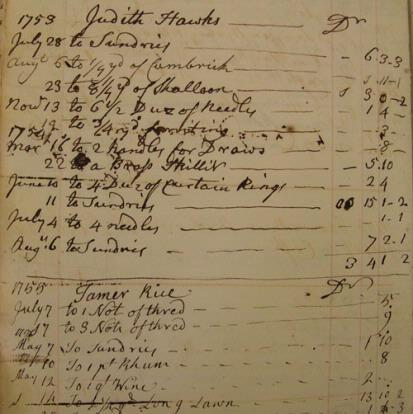 1753 Judith Hawks Dr
July 28 to Sundries - 6.3.3
Augt 6 to 1/9 yd of Cambrick
23 to of Shalloon
Novr 13 to 6 1/2 Duz of Needles 1 4 -
1754
Mar 16 to 2 handles for Draws - 8 -
22 to a Brass Skillit - 5.10
June 10 to 4 Duz of Curtain Rings - 2 4
11 to Sundries 15 1-2
July 4 to 4 needles 1-1
Augt 6 to Sundries 7 2.1
3 4 1 2
1755 Tamer Rice Dr
July 7 to 1 Not of thred 5
to 3 Nots of thred 9
May 7 To Sundries 1 10
10 To 1 pt Rhum 8
May 12 To 1 qt Wine 2
Long Lawn 13 10 2